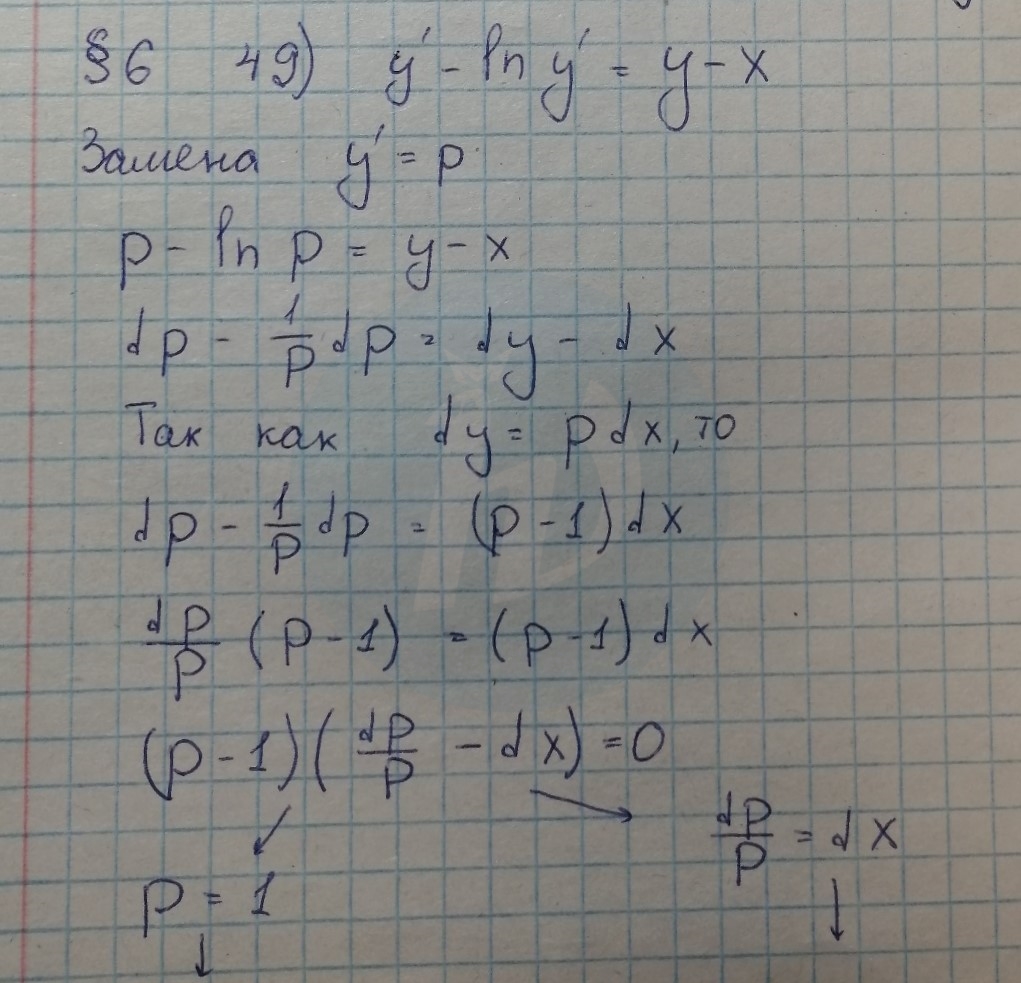 §6 49) y' - ln y' = y - x
Замена y' = p
p - ln p = y - x
dp - 1/p dp = dy - dx
Так как dy = p dx, то
dp - 1/p dp = (p - 1) dx
dp/p (p - 1) = (p - 1) dx
(p - 1)(dp/p - dx) = 0
dp/p = dx
p = 1